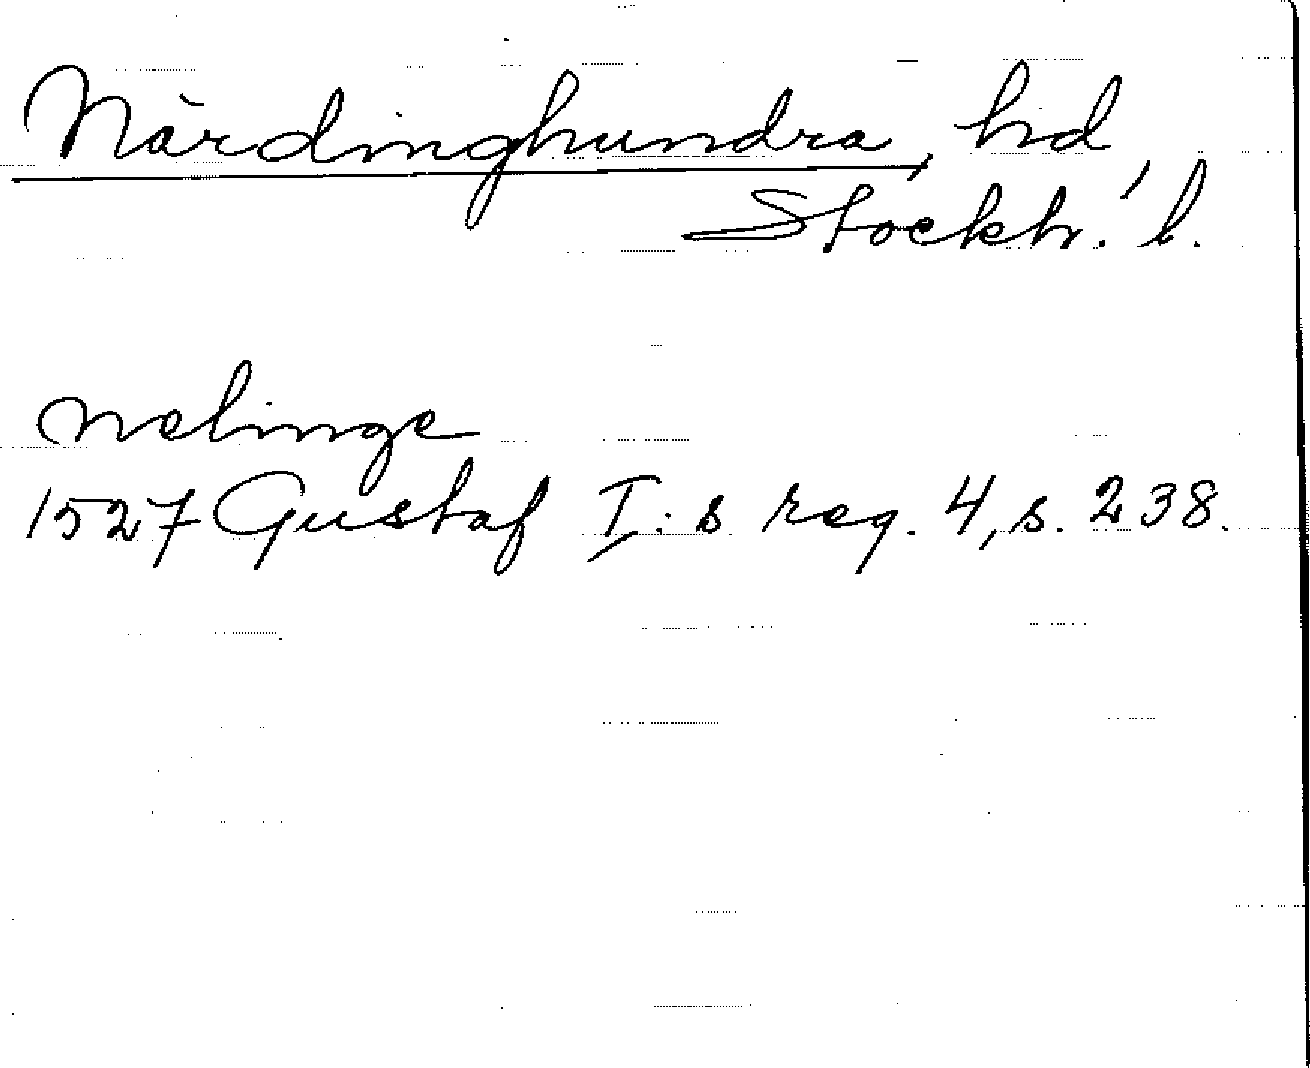 Närdinghundra, hd,
Stockh. l.
nelinge
1527 Gustaf I:s reg. 4, s. 238.